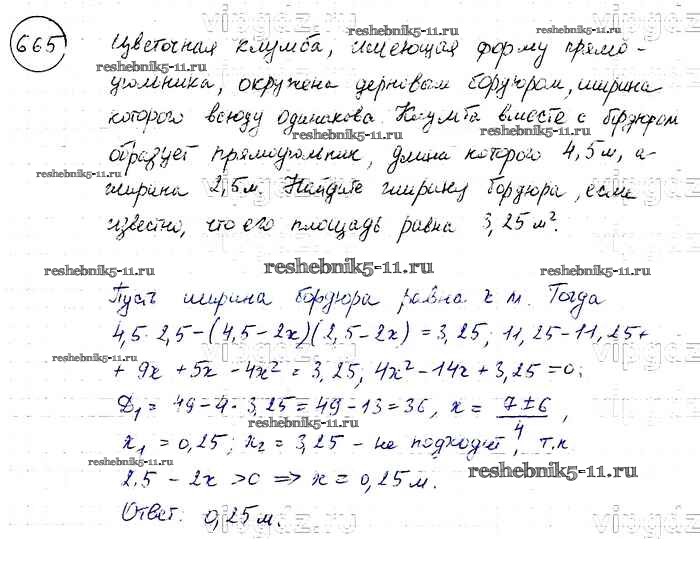 665
Цветочная клумба, имеющая форму прямо-
угольника, окружена дерновым бордюром, ширина
которого всюду одинакова. Клумба вместе с бордюром
образует прямоугольник, длина которого 4,5 м, а
ширина 2,5 м. Найдите ширину бордюра, если
известно, что его площадь равна 3,25 м².
reshebnik5-11.ru
Пусть ширина бордюра равна x м. Тогда
4,5·2,5-(4,5-2x)(2,5-2x)=3,25; 11,25-11,25+
+9x+5x-4x²=3,25; 4x²-14x+3,25=0;
D₁=49-4·3,25=49-13=36, x=(7±6)/4,
x₁=0,25; x₂=3,25 - не подходит, т.к
2,5-2x>0 => x=0,25 м.
Ответ: 0,25 м.
vipgdz